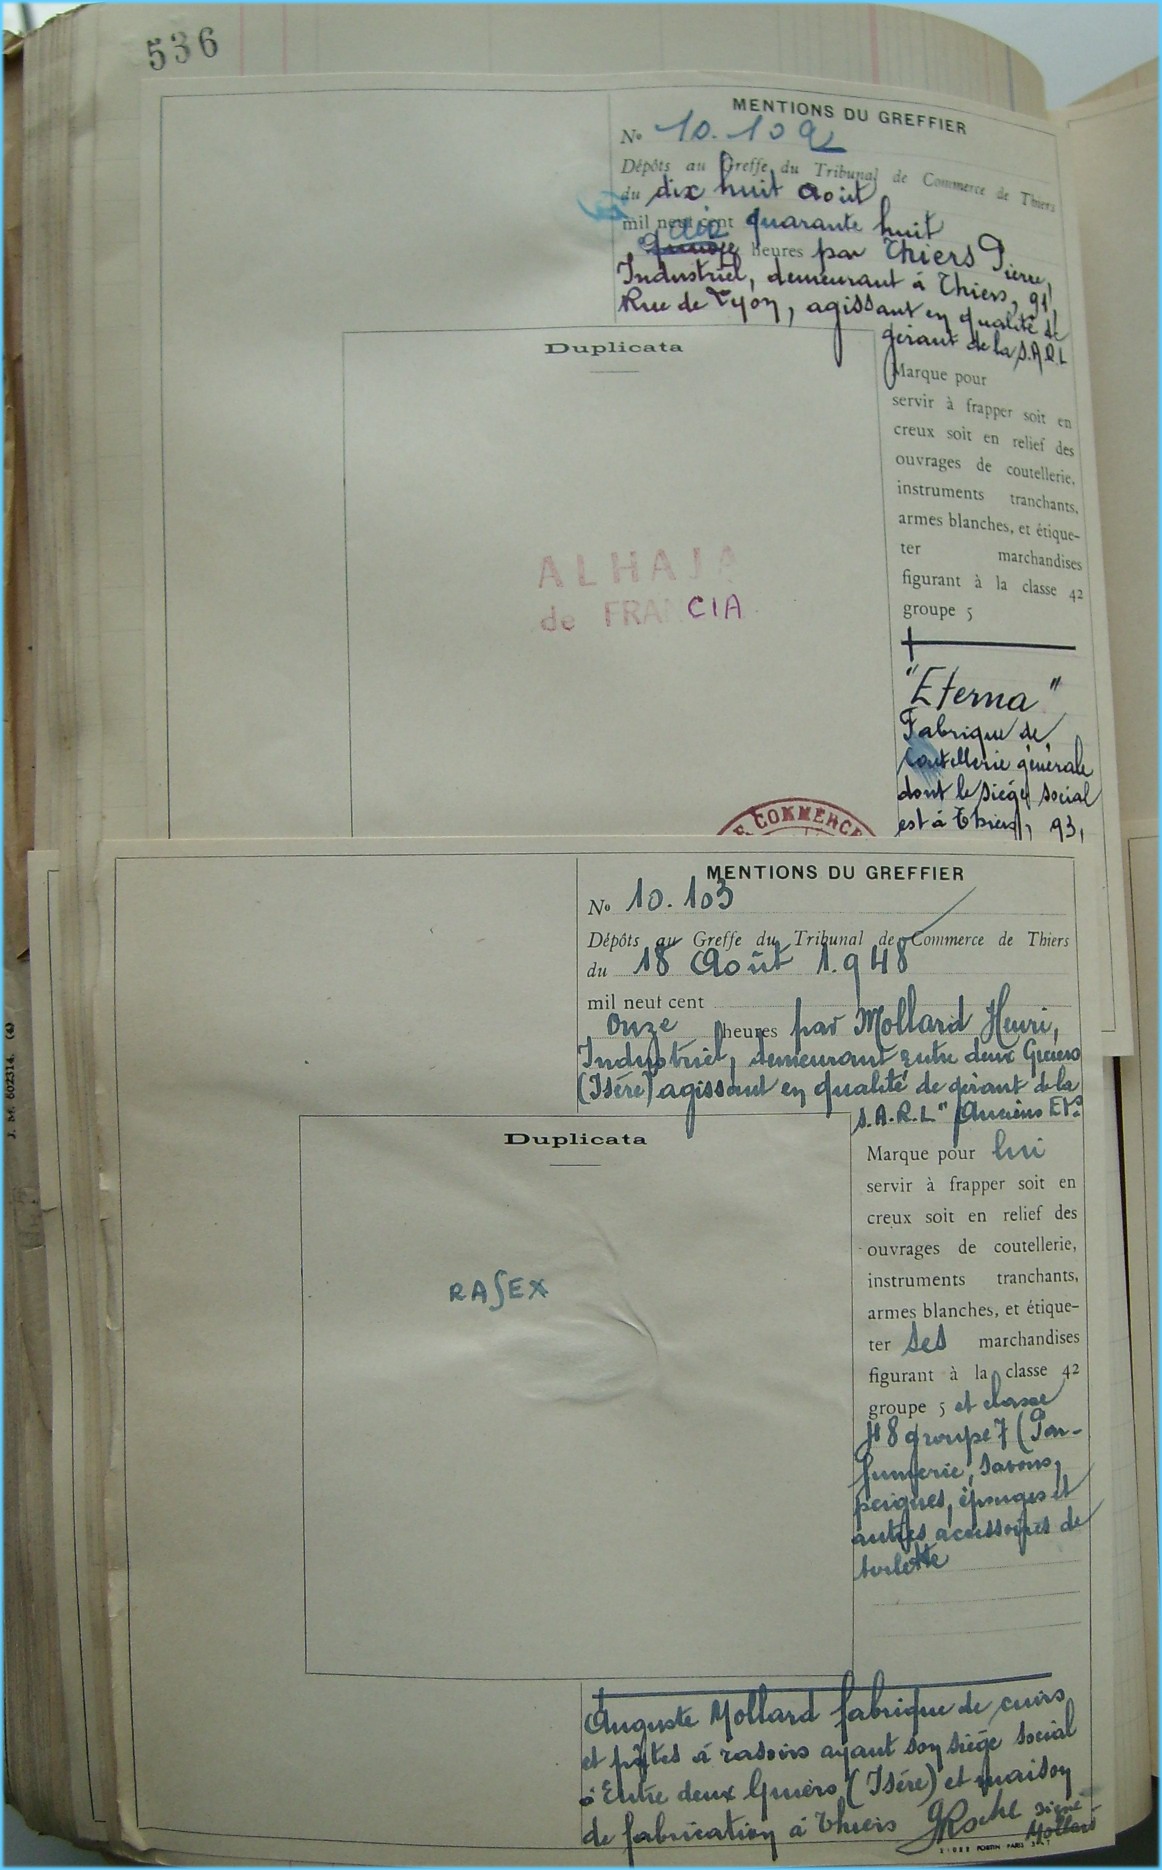 536
MENTIONS DU GREFFIER
No 10.102
Dépôts au Greffe du Tribunal de Commerce de Thiers
du dix huit août
mil neuf cent quarante huit
heures par Thiers Pierre,
Industriel, demeurant à Thiers, 91,
Rue de Lyon, agissant en qualité de
gérant de la S.A.R.L
Duplicata
Marque pour
servir à frapper soit en
creux soit en relief des
ouvrages de coutellerie,
instruments tranchants,
armes blanches, et étique-
ter marchandises
figurant à la classe 42
groupe 5
ALHAJA
de FRANCIA
"Eterna"
Fabrique de
Coutellerie générale
dont le siège social
est à Thiers, 93,
E COMMERCE
MENTIONS DU GREFFIER
No 10.103
Dépôts au Greffe du Tribunal de Commerce de Thiers
du 18 Août 1.948
mil neuf cent
Onze heures par Mollard Henri,
Industriel, demeurant Entre deux Guiers
(Isère) agissant en qualité de gérant de la
S.A.R.L " Anciens Ets
Duplicata
Marque pour lui
servir à frapper soit en
creux soit en relief des
ouvrages de coutellerie,
instruments tranchants,
armes blanches, et étique-
ter ses marchandises
figurant à la classe 42
groupe 5 et classe
48 groupe 7 (Par-
fumerie, savons,
peignes, éponges et
autres accessoires de
toilette
RASEX
Auguste Mollard fabrique de cuirs
et pâtes à rasoirs ayant son siège social
à Entre deux Guiers (Isère) et maison
de fabrication à Thiers GRoche signé
Mollard
J. M. 602314. (4)